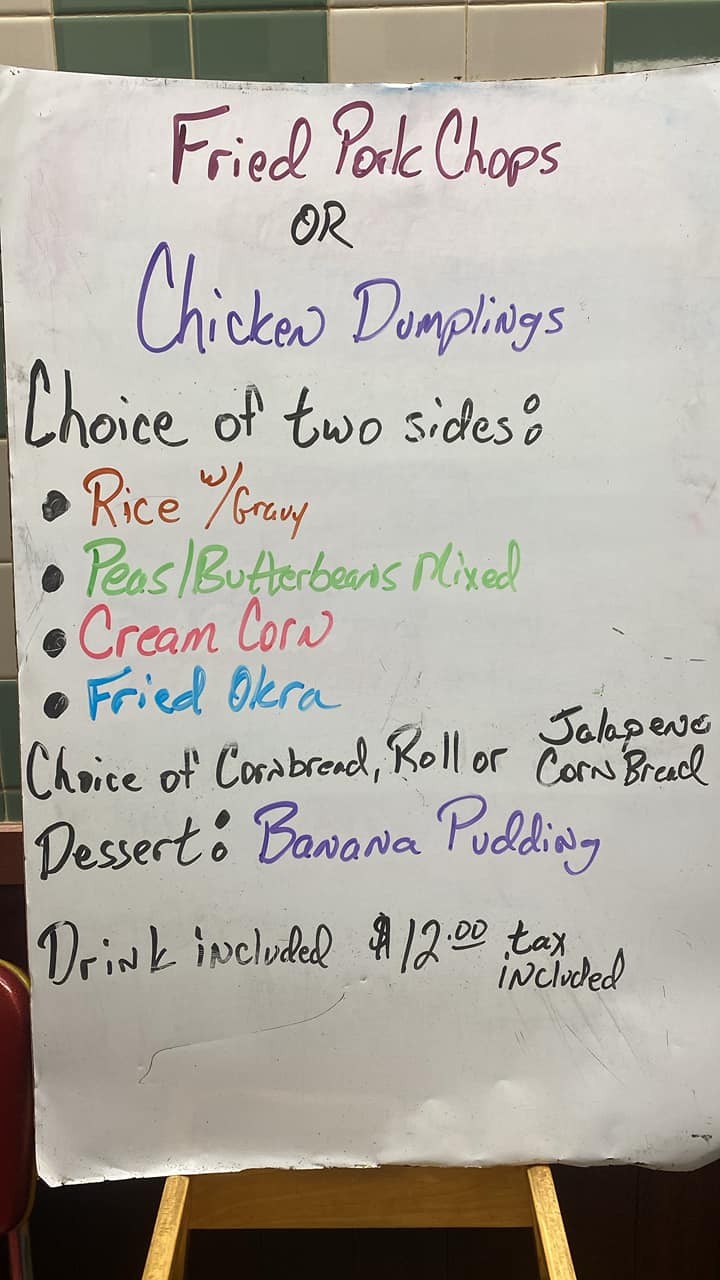 Fried Pork Chops
OR
Chicken Dumplings
Choice of two sides:
• Rice w/Gravy
• Peas/Butterbeans Mixed
• Cream Corn
• Fried Okra
Choice of Cornbread, Roll or Jalapeno Corn Bread
Dessert: Banana Pudding
Drink included $12.00 tax included